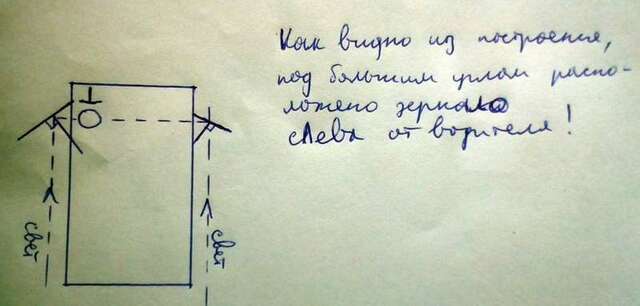 Как видно из построения,
под большим углом распо-
ложено зеркало
слева от водителя!
свет
свет